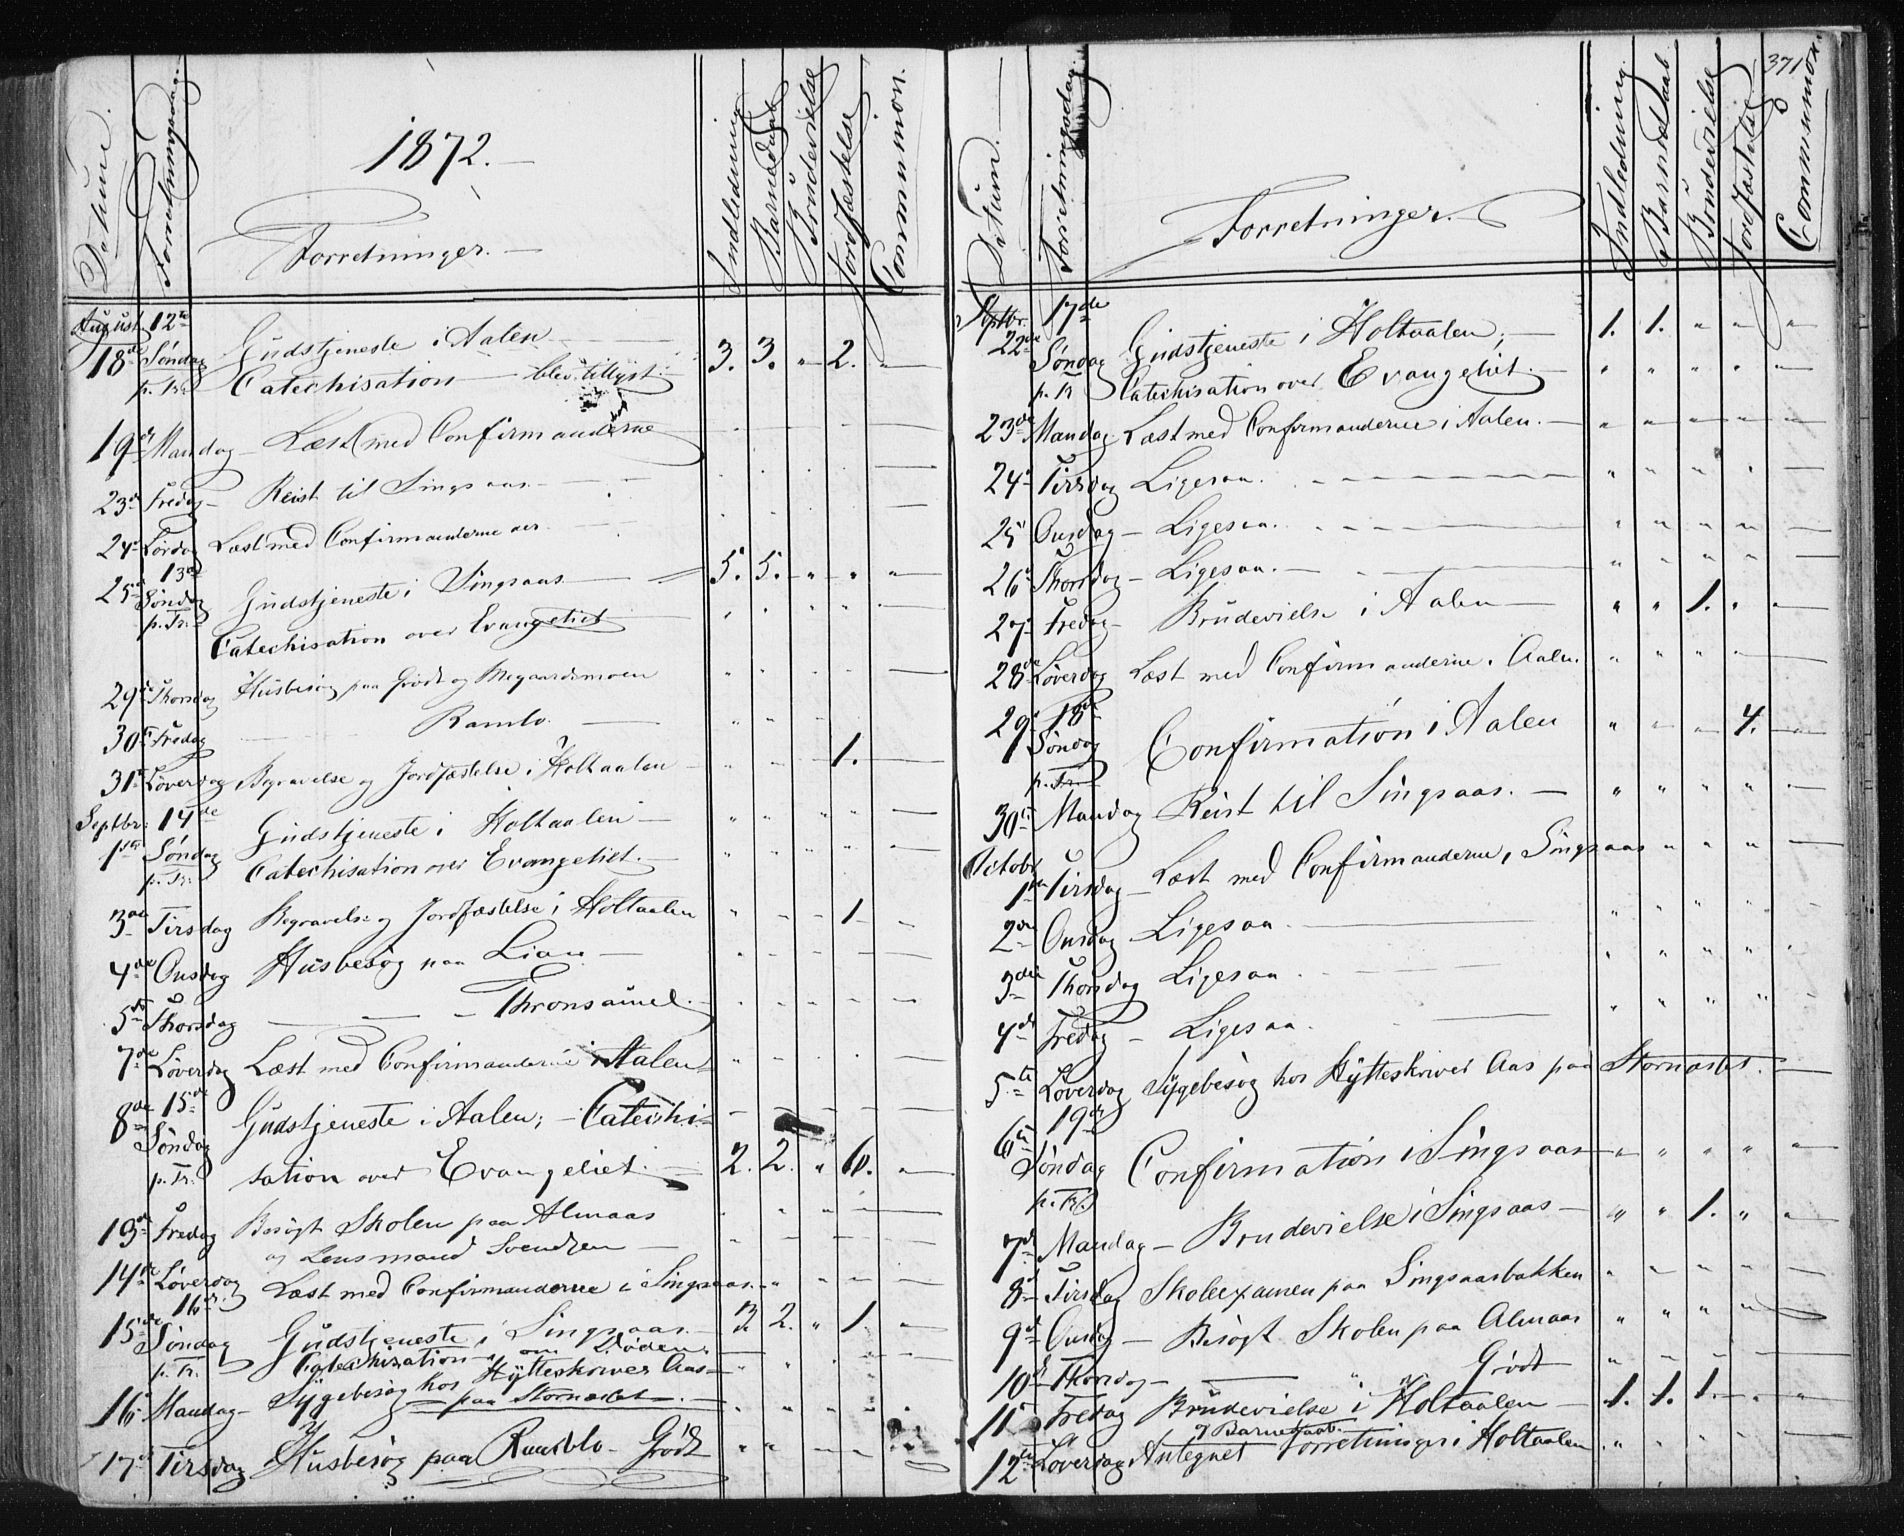 1872.
Datum. Forretningsdag. Forretninger. Indledning Barnedaab Brudevielse Jordfæstelse Communion.
August 12te
18de Søndag Gudstjeneste i Aalen 3. 3. " 2. "
p. Tr. Catechisation blev tillyst.
19de Mandag Læst med Confirmanderne
23de Fredag Reist til Singsaas
24de Lørdag Læst med Confirmanderne
13de
25de Søndag Gudstjeneste i Singsaas 5. 5. " " "
p. Tr. Catechisation over Evangeliet
29de Thorsdag Husbesøg paa Grødt og
30te Fredag Ramlo
31te Løverdag Begravelse og Jordfæstelse i Holtaalen 1.
Septbr. 14de
1ste Søndag Gudstjeneste i Holtaalen
p. Tr. Catechisation over Evangeliet.
3de Tirsdag Begravelse og Jordfæstelse i Holtaalen 1
4de Onsdag Husbesøg paa Lian
5te Thorsdag
7de Løverdag Læst med Confirmanderne i Aalen
8de 15de Gudstjeneste i Aalen; Catechi-
Søndag p. Tr. sation over Evangeliet. 2. 2. " 6. "
13de Fredag Besøgt Skolen paa Almaas
og Lensmand Svendsen
14de Løverdag Læst med Confirmanderne i Singsaas
16de
15de Søndag Gudstjeneste i Singsaas 2 2. " 1. "
p. Tr. Catechisation om Døden.
16de Mandag Sygebesøg hos Hytteskriver Aas
paa Stornæstet.
17de Tirsdag Husbesøg paa Grødt
371
Datum. Forretningsdag. Forretninger. Indledning. Barnedaab Brudevielse Jordfæstelse Communion.
Septbr. 17de
22de Søndag Gudstjeneste i Holtaalen; 1. 1. " " "
p. Tr. Catechisation over Evangeliet.
23de Mandag Læst med Confirmanderne i Aalen.
24de Tirsdag Ligesaa.
25 Onsdag Ligesaa.
26de Thorsdag Ligesaa.
27 Fredag Brudevielse i Aalen " " 1. " "
28de Løverdag Læst med Confirmanderne i Aalen.
29de 18de
Søndag Confirmation i Aalen " " " 4. "
p. Tr.
30te Mandag Reist til Singsaas.
Octobr
1ste Tirsdag Læst med Confirmanderne i Singsaas
2den Onsdag Ligesaa
3die Thorsdag Ligesaa
4de Fredag Ligesaa
5te Løverdag Sygebesøg hos Hytteskriver Aas paa Stornæstet.
19de
6te Søndag Confirmation i Singsaas
p. Tr.
7de Mandag Brudevielse i Singsaas " " 1. " "
8de Tirsdag Skoleexamen paa Singsaasbakken
9de Onsdag Besøgt Skolen paa Almaas
10de Thorsdag " Grødt
11te Fredag Brudevielse i Holtaalen 1. 1. 1. " "
og Barnedaab.
12te Løverdag Antegnet Forretninger i Holtaalen